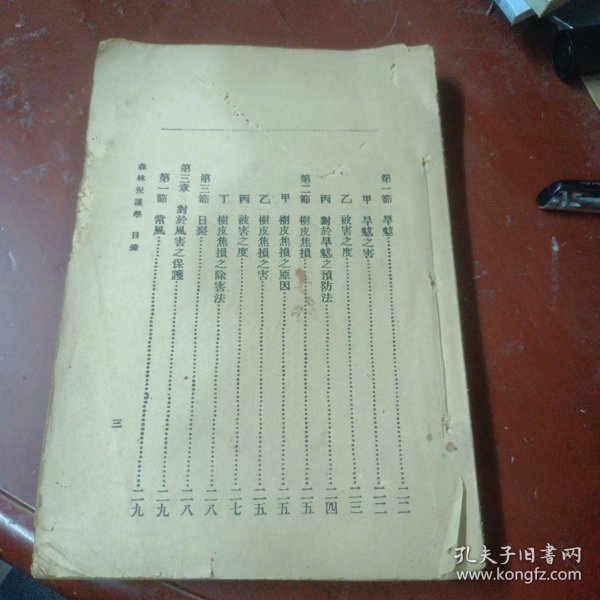 第一節 旱魃……二二
甲 旱魃之害……二二
乙 被害之度……二三
丙 對於旱魃之預防法……二四
第二節 樹皮焦損……二五
甲 樹皮焦損之原因……二五
乙 樹皮焦損之害……二五
丙 被害之度……二七
丁 樹皮焦損之除害法……二八
第三節 日裂……二八
第三章 對於風害之保護……二九
第一節 常風……二九
森林保護學 目錄
三
孔夫子旧书网
www.kongfz.com